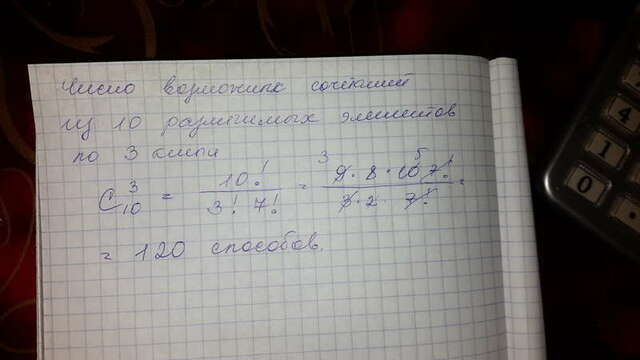 Число возможных сочетаний
из 10 различимых элементов
по 3
C₁₀³ = 10! / 3! 7! = 9 · 8 · 10 7! / 3 · 2 · 7! =
3 5
= 120 способов.
4
1
0